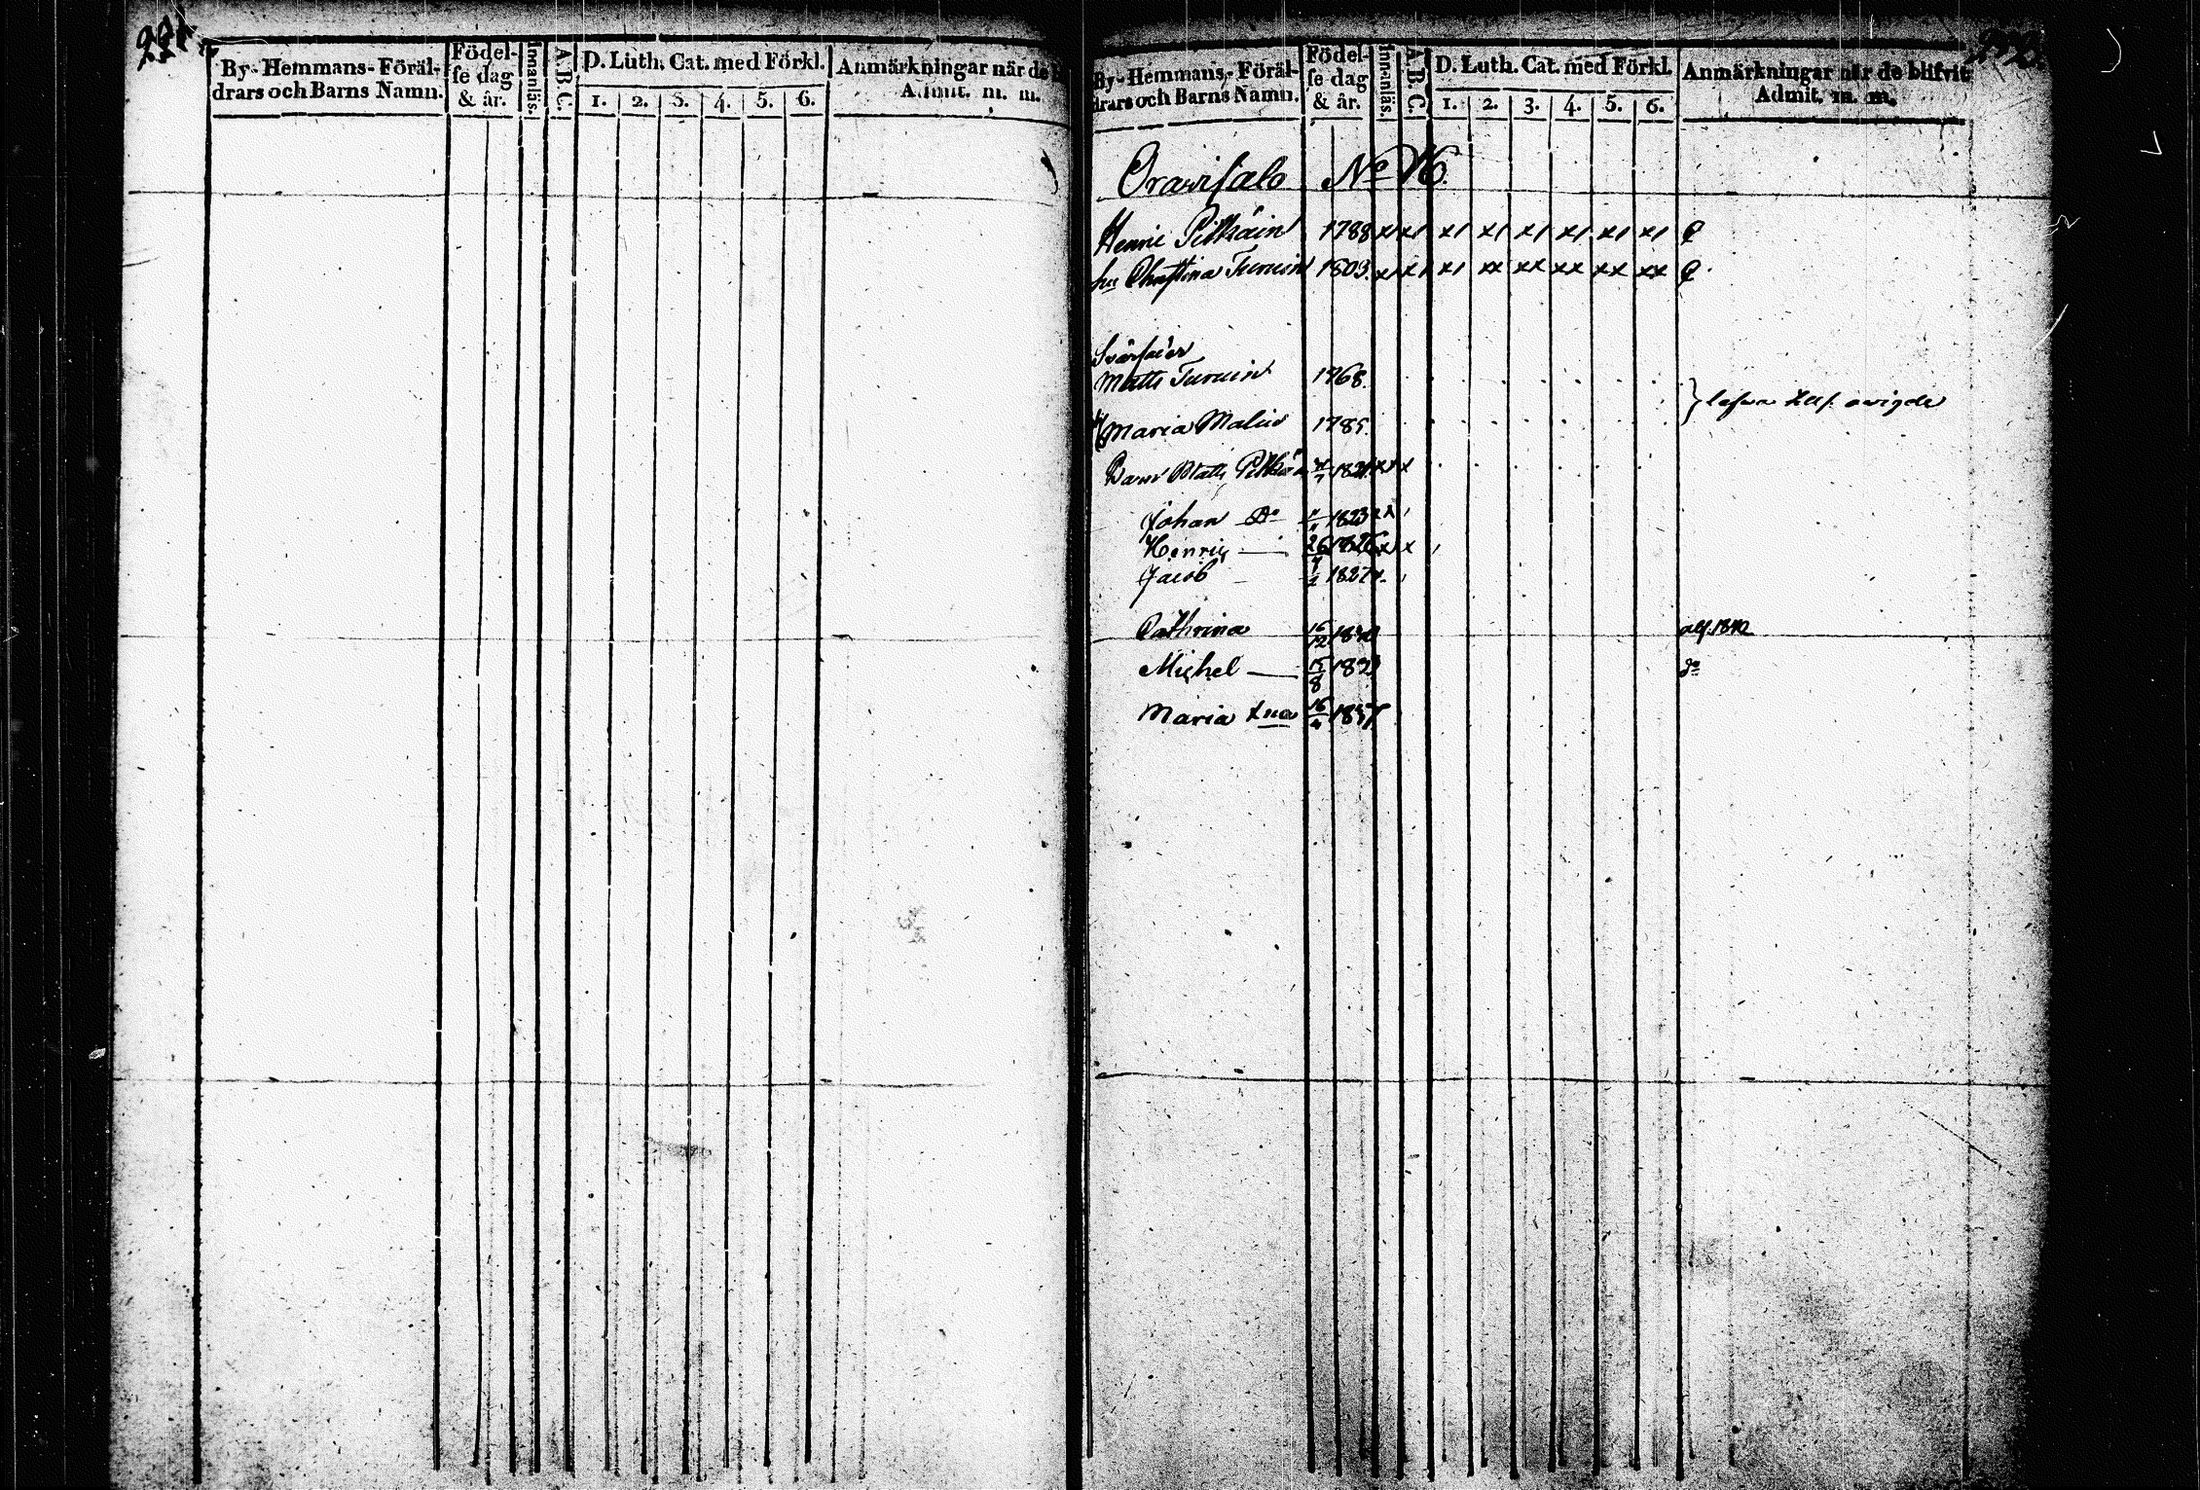 221
By- Hemmans- Föräl-
drars och Barns Namn.
Födel-
se dag
& år.
Innanläs.
A. B. C.
D. Luth. Cat. med Förkl.
1. 2. 3. 4. 5. 6.
Anmärkningar när de
Admit. m. m.
By- Hemmans- Föräl-
drars och Barns Namn.
Födel-
se dag
& år.
Innanläs.
A. B. C.
D. Luth. Cat. med Förkl.
1. 2. 3. 4. 5. 6.
Anmärkningar när de blifvit
Admit. m. m.
Orawisalo No 16.
Henric Pitkäin 1788
hu Christina Turuin 1803
Svärfäder
Matts Turuin 1768.
Maria Malin 1785.
Barn Matts Pitkäin 1821
Johan Do 1823
Henric 26 1825
Jacob 1827
Cathrina 16/12 1830 1840
Michel 15/8 1833 do
Maria 16 1837